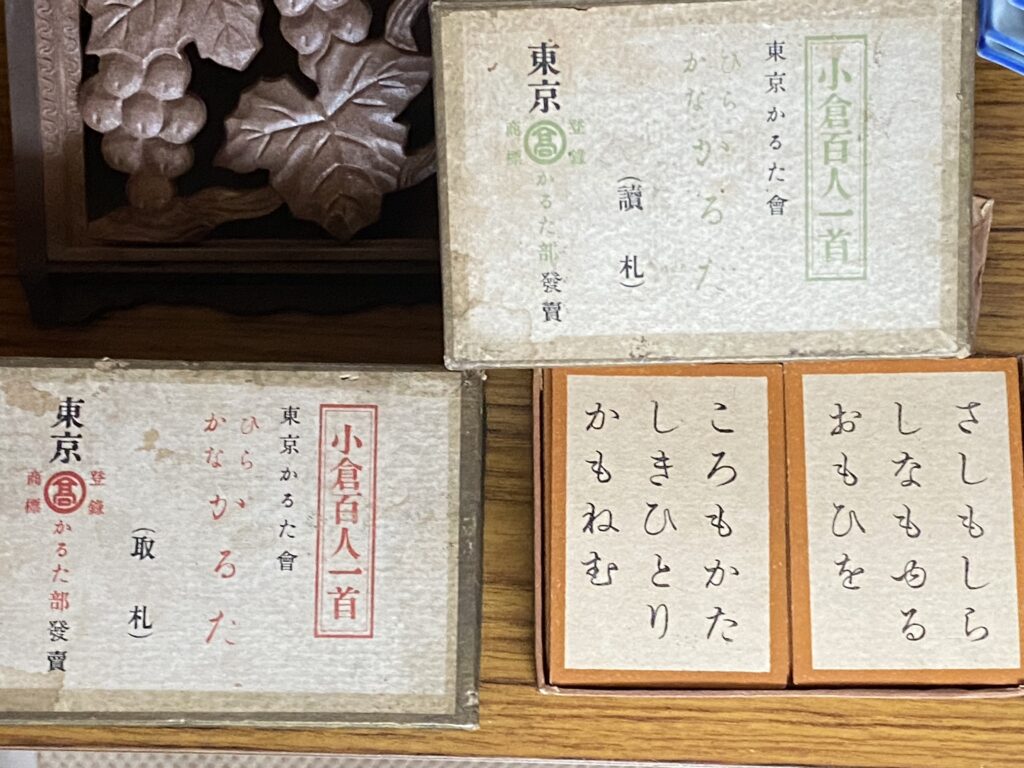 小倉百人一首
東京かるた會
ひらかながるた
(讀札)
東京
登録商標
髙
かるた部發賣
小倉百人一首
東京かるた會
ひらかながるた
(取札)
東京
登錄商標
髙
かるた部發賣
さしもしら
しなもゆる
おもひを
ころもかた
しきひとり
かもねむ